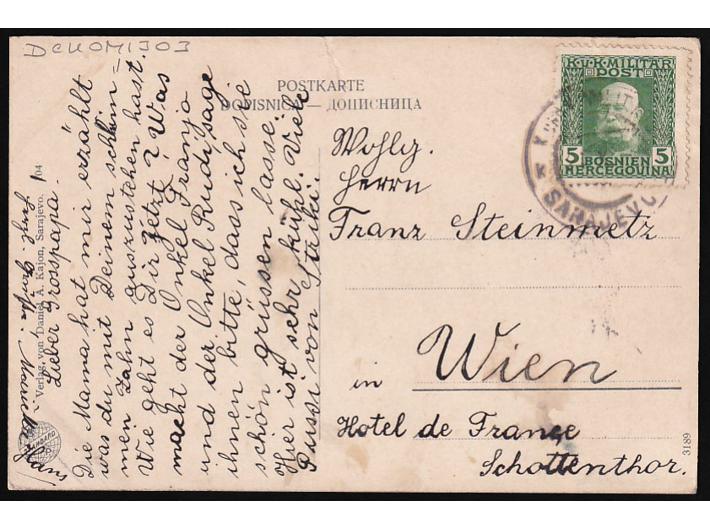 POSTKARTE
DOPISNICA — ДОПИСНИЦА
K.u.K. MILITÄR
POST
5 BOSNIEN 5
HERCEGOVINA
SARAJEVO
Lieber Grosspapa.
Die Mama hat mir erzählt
was du mit Deinem schlim=
men Zahn auszustehen hast.
Wie geht es Dir jetzt? Was
macht der Onkel Franja
und der Onkel Rudi, sage
ihnen bitte, dass ich sie
schön grüssen lasse.
Hier ist sehr kühl. Viele
Pussi von Striki.
Hans
Wohlg.
Herrn
Franz Steinmetz
in Wien
Hotel de France
Schottenthor.
Verlag von Daniel A. Kajon, Sarajevo.
3189